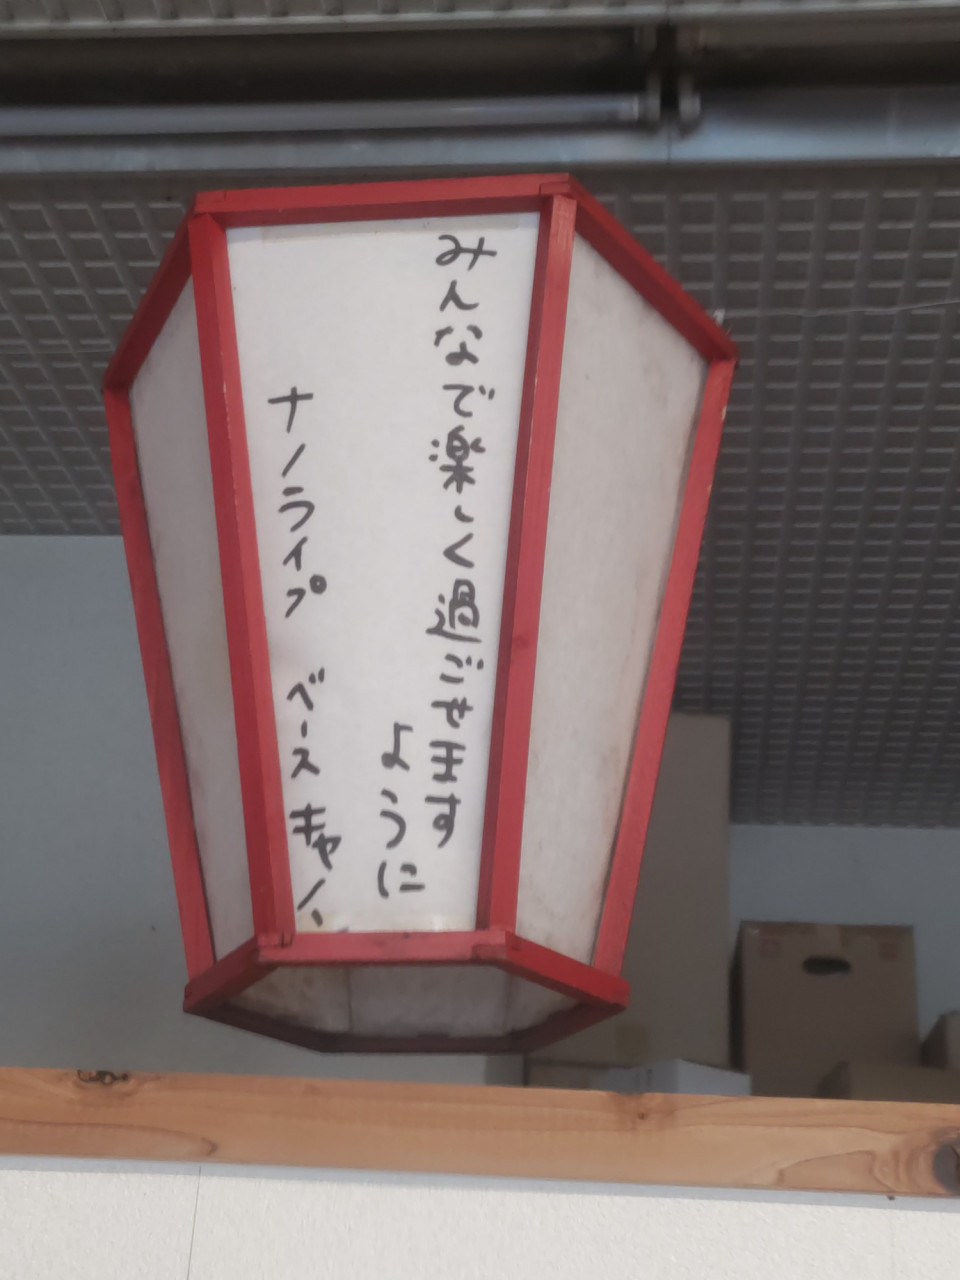 みんなで楽しく過ごせます
ように
ナノライプ ベースキャノ、